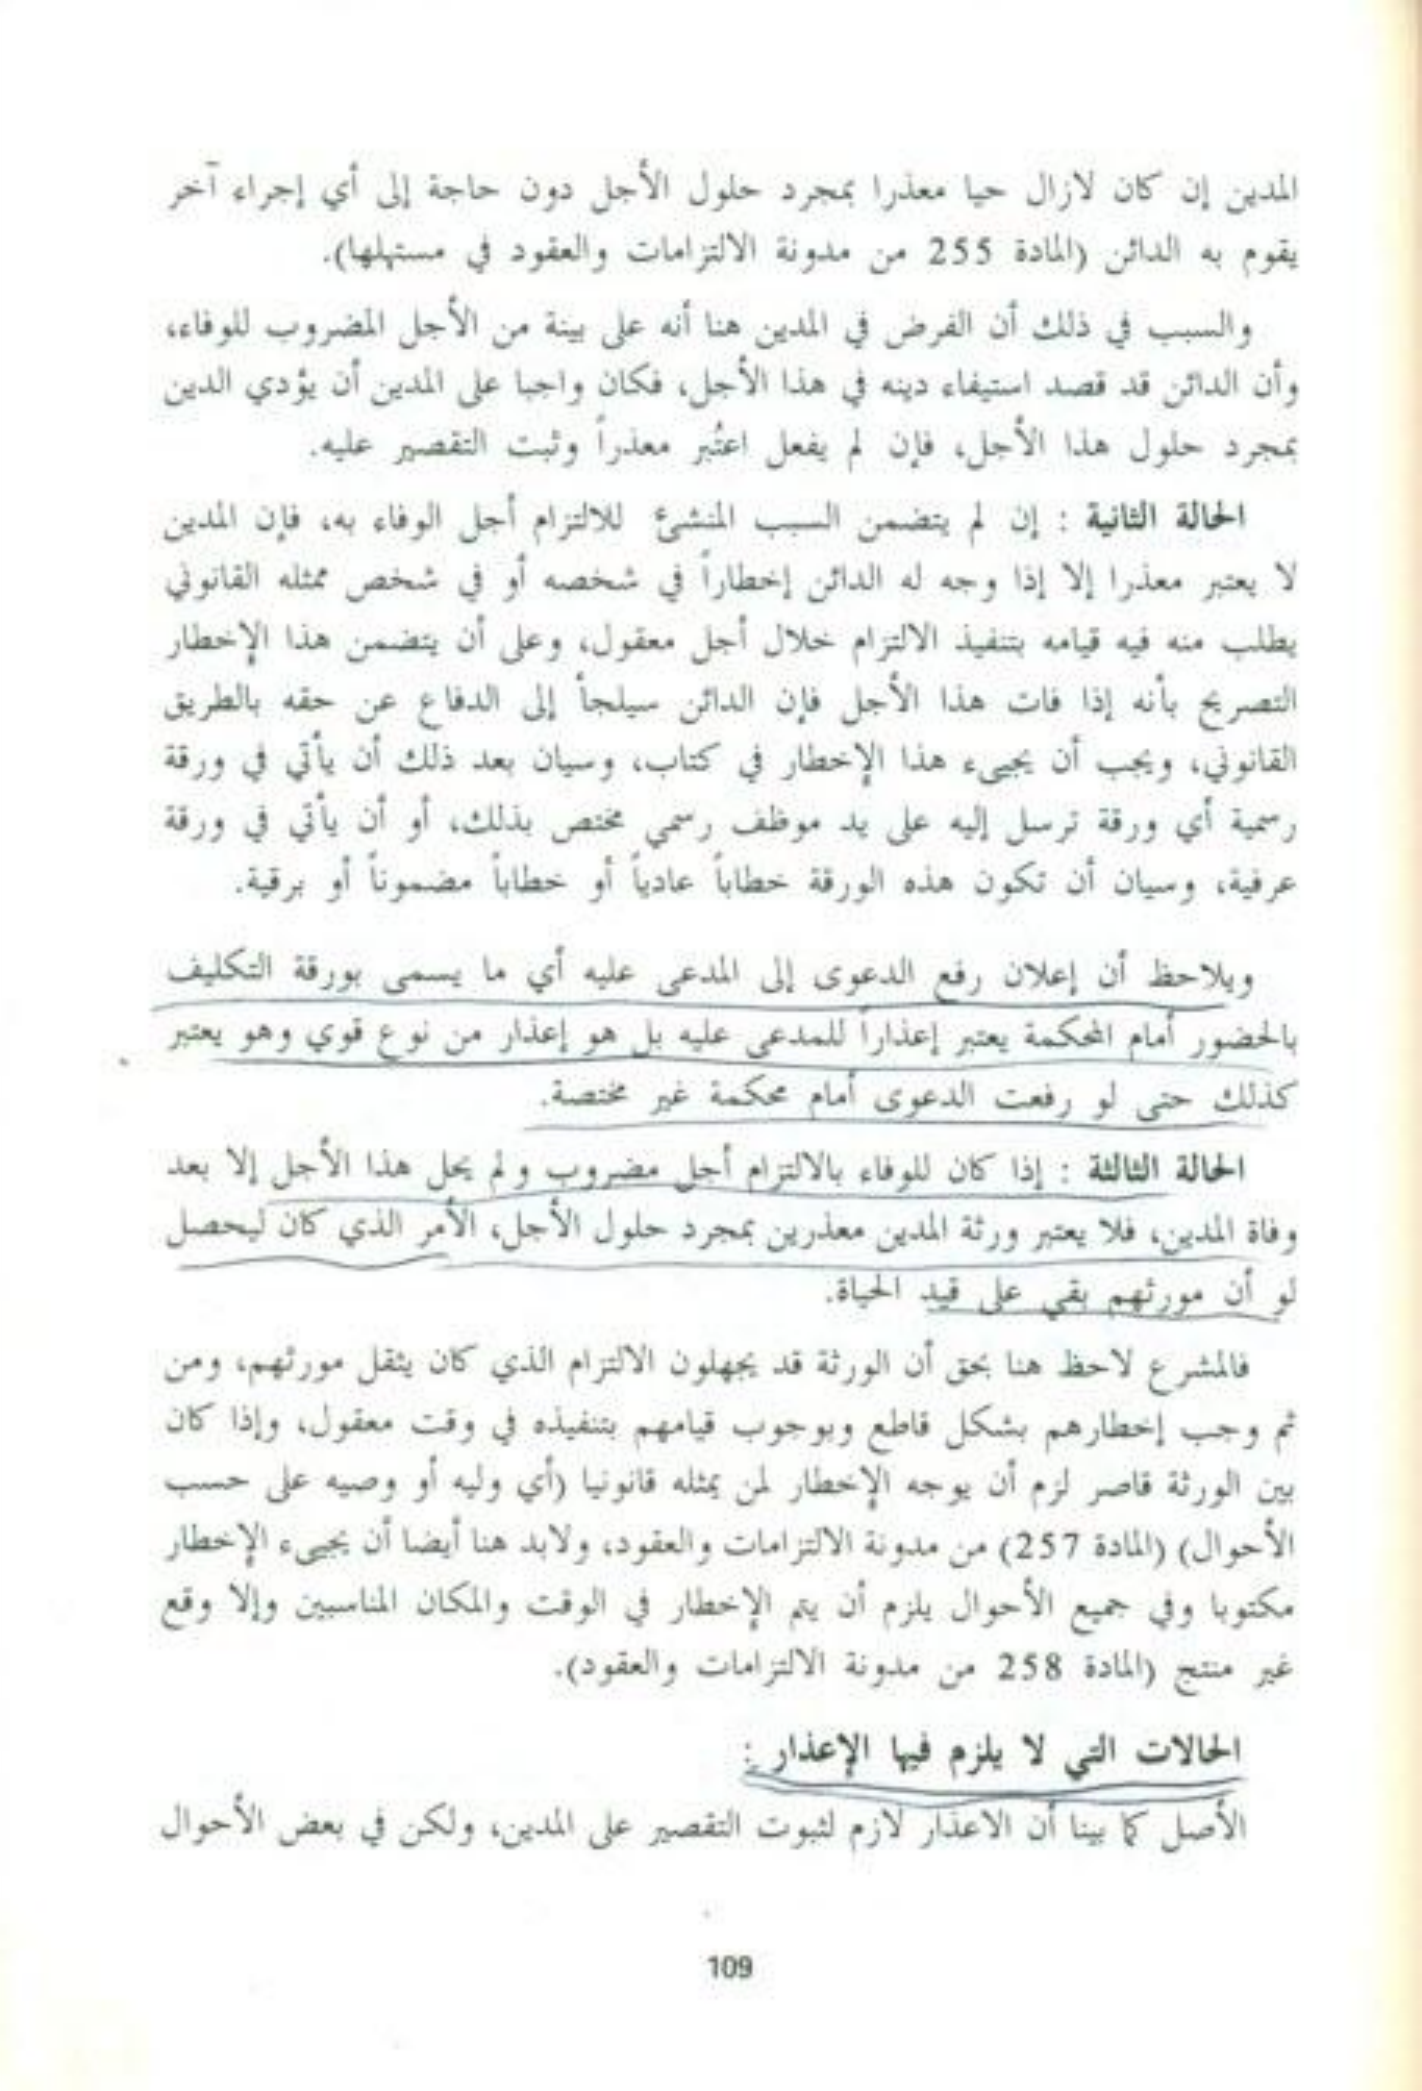 المدين إن كان لازال حيا معذرا بمجرد حلول الأجل دون حاجة إلى أي إجراء آخر
يقوم به الدائن (المادة 255 من مدونة الالتزامات والعقود في مستهلها).
والسبب في ذلك أن الفرض في المدين هنا أنه على بينة من الأجل المضروب للوفاء،
وأن الدائن قد قصد استيفاء دينه في هذا الأجل، فكان واجبا على المدين أن يؤدي الدين
بمجرد حلول هذا الأجل، فإن لم يفعل اعتُبر معذراً وثبت التقصير عليه.
الحالة الثانية : إن لم يتضمن السبب المنشئ للالتزام أجل الوفاء به، فإن المدين
لا يعتبر معذرا إلا إذا وجه له الدائن إخطاراً في شخصه أو في شخص ممثله القانوني
يطلب منه فيه قيامه بتنفيذ الالتزام خلال أجل معقول، وعلى أن يتضمن هذا الإخطار
التصريح بأنه إذا فات هذا الأجل فإن الدائن سيلجأ إلى الدفاع عن حقه بالطريق
القانوني، ويجب أن يجيىء هذا الإخطار في كتاب، وسيان بعد ذلك أن يأتي في ورقة
رسمية أي ورقة ترسل إليه على يد موظف رسمي مختص بذلك، أو أن يأتي في ورقة
عرفية، وسيان أن تكون هذه الورقة خطاباً عادياً أو خطاباً مضموناً أو برقية.
ويلاحظ أن إعلان رفع الدعوى إلى المدعى عليه أي ما يسمى بورقة التكليف
بالحضور أمام المحكمة يعتبر إعذاراً للمدعى عليه بل هو إعذار من نوع قوي وهو يعتبر
كذلك حتى لو رفعت الدعوى أمام محكمة غير مختصة.
الحالة الثالثة : إذا كان للوفاء بالالتزام أجل مضروب ولم يحل هذا الأجل إلا بعد
وفاة المدين، فلا يعتبر ورثة المدين معذرين بمجرد حلول الأجل، الأمر الذي كان ليحصل
لو أن مورثهم بقي على قيد الحياة.
فالمشرع لاحظ هنا بحق أن الورثة قد يجهلون الالتزام الذي كان يثقل مورثهم، ومن
ثم وجب إخطارهم بشكل قاطع وبوجوب قيامهم بتنفيذه في وقت معقول، وإذا كان
بين الورثة قاصر لزم أن يوجه الإخطار لمن يمثله قانونيا (أي وليه أو وصيه على حسب
الأحوال) (المادة 257) من مدونة الالتزامات والعقود، ولابد هنا أيضا أن يجيىء الإخطار
مكتوبا وفي جميع الأحوال يلزم أن يتم الإخطار في الوقت والمكان المناسبين وإلا وقع
غير منتج (المادة 258 من مدونة الالتزامات والعقود).
الحالات التي لا يلزم فيها الإعذار :
الأصل كما بينا أن الاعذار لازم لثبوت التقصير على المدين، ولكن في بعض الأحوال
109